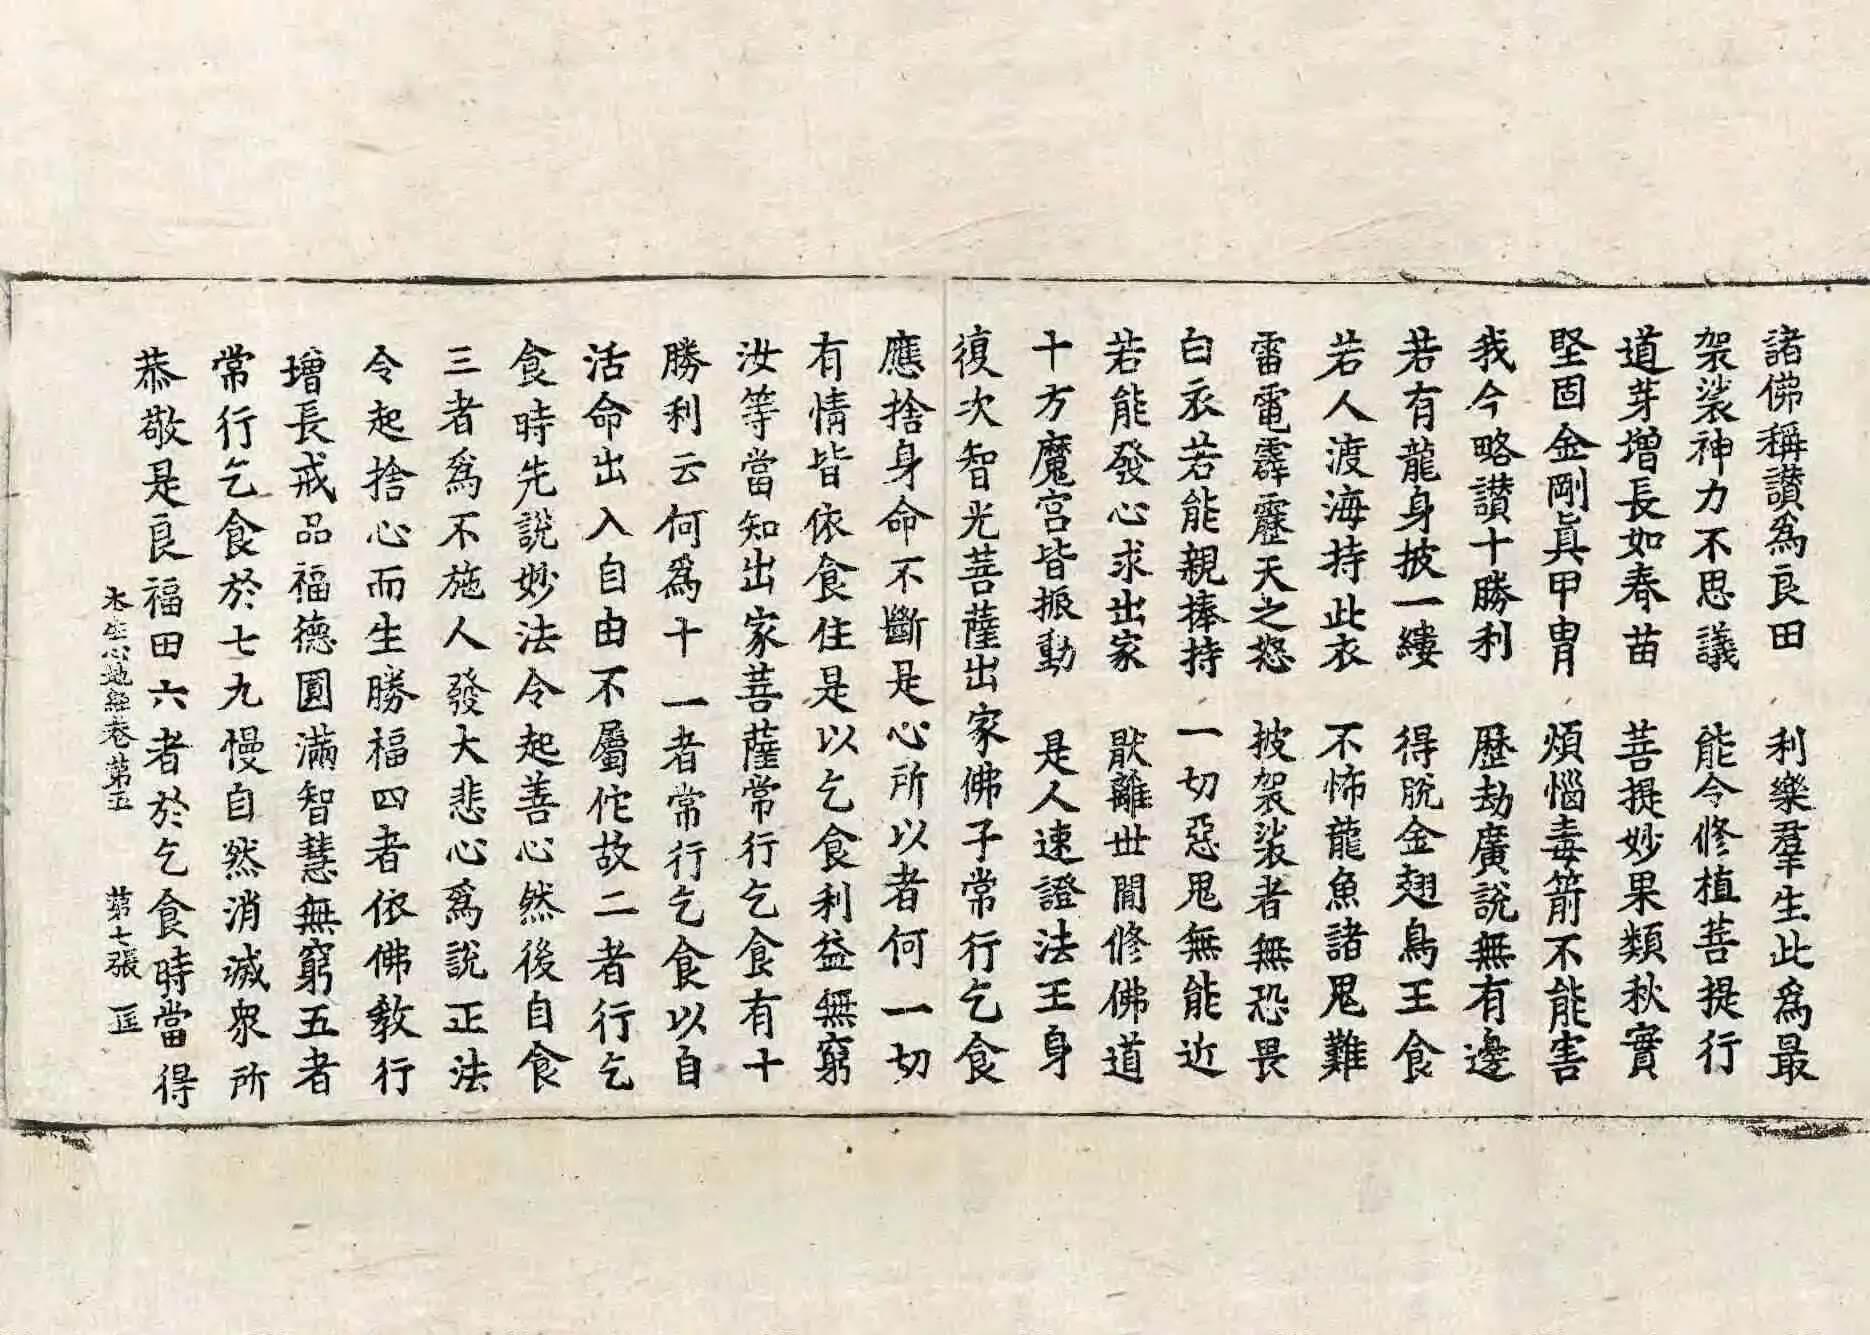 諸佛稱讃為良田　利樂羣生此為最
袈裟神力不思議　能令修植菩提行
道芽增長如春苗　菩提妙果類秋實
堅固金剛眞甲冑　煩惱毒箭不能害
我今略讃十勝利　歷劫廣說無有邊
若有龍身披一縷　得脫金翅鳥王食
若人渡海持此衣　不怖龍魚諸鬼難
雷電霹靂天之怒　披袈裟者無恐畏
白衣若能親捧持　一切惡鬼無能近
若能發心求出家　猒離世間修佛道
十方魔宫皆振動　是人速證法王身
復次智光菩薩出家佛子常行乞食
應捨身命不斷是心所以者何一切
有情皆依食住是以乞食利益無窮
汝等當知出家菩薩常行乞食有十
勝利云何爲十一者常行乞食以自
活命出入自由不屬佗故二者行乞
食時先說妙法令起善心然後自食
三者爲不施人發大悲心爲說正法
令起捨心而生勝福四者依佛教行
增長戒品福德圓滿智慧無窮五者
常行乞食於七九慢自然消滅衆所
恭敬是良福田六者於乞食時當得
本生心地經卷第五　第七張　匡